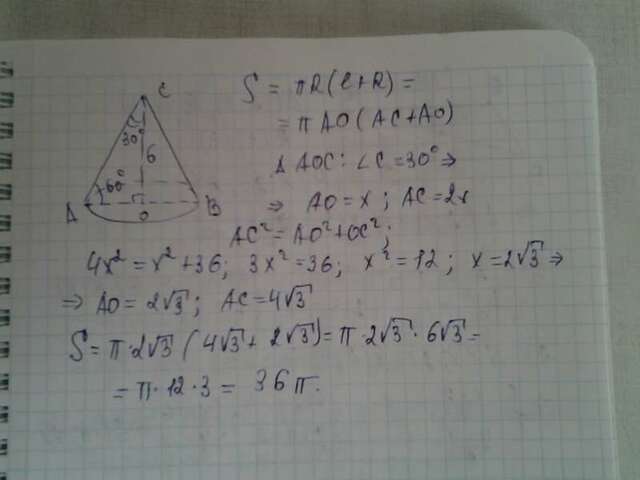 C
30°
6
60°
A
O
B
S = πR(ℓ+R) =
= π AO (AC+AO)
Δ AOC: ∠C = 30° ⇒
⇒ AO = x ; AC = 2x
AC² = AO² + OC² ;
4x² = x² + 36; 3x² = 36; x² = 12 ; x = 2√3 ⇒
⇒ AO = 2√3 ; AC = 4√3
S = π·2√3 (4√3 + 2√3) = π·2√3·6√3 =
= π·12·3 = 36π.